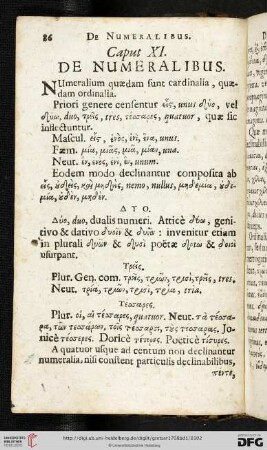 86 DE NUMERALIBUS.
Caput XI.
DE NUMERALIBUS.
NUmeralium quædam sunt cardinalia, quæ-
dam ordinalia.
Priori genere censentur εἷς, unus δύο, vel
δύω, duo, τρεῖς, tres, τέσσαρες, quatuor, quæ sic
inflectuntur.
Mascul. εἷς, ἑνὸς, ἑνὶ, ἕνα, unus.
Fœm. μία, μιᾶς, μιᾷ, μίαν, una.
Neut. ἓν, ἑνὸς, ἑνὶ, ἓν, unum.
Eodem modo declinantur composita ab
εἷς, οὐδεὶς, καὶ μηδεὶς, nemo, nullus, μηδεμία, οὐδε-
μία, οὐδὲν, μηδέν.
ΔΥΟ.
Δύο, duo, dualis numeri. Atticè δύω; geni-
tivo & dativo δυοῖν & δυεῖν: invenitur etiam
in plurali δυῶν & δυσὶ poëtæ δύω & δοιοὶ
usurpant.
Τρεῖς.
Plur. Gen. com. τρεῖς, τριῶν, τρισὶ, τρεῖς, tres.
Neut. τρία, τριῶν, τρισὶ, τρία, tria.
Τέσσαρες.
Plur. οἱ, αἱ τέσσαρες, quatuor. Neut. τὰ τέσσα-
ρα, τῶν τεσσάρων, τοῖς τέσσαρσι, τοὺς τέσσαρας. Jo-
nicè τέσσερες. Doricè τέτορες. Poëticè πίσυρες.
A quatuor usque ad centum non declinantur
numeralia, nisi constent particulis declinabilibus,
πέντε,
http://digi.ub.uni-heidelberg.de/diglit/gretser1708bd1/0102
© Universitätsbibliothek Heidelberg
gefördert durch die
DFG